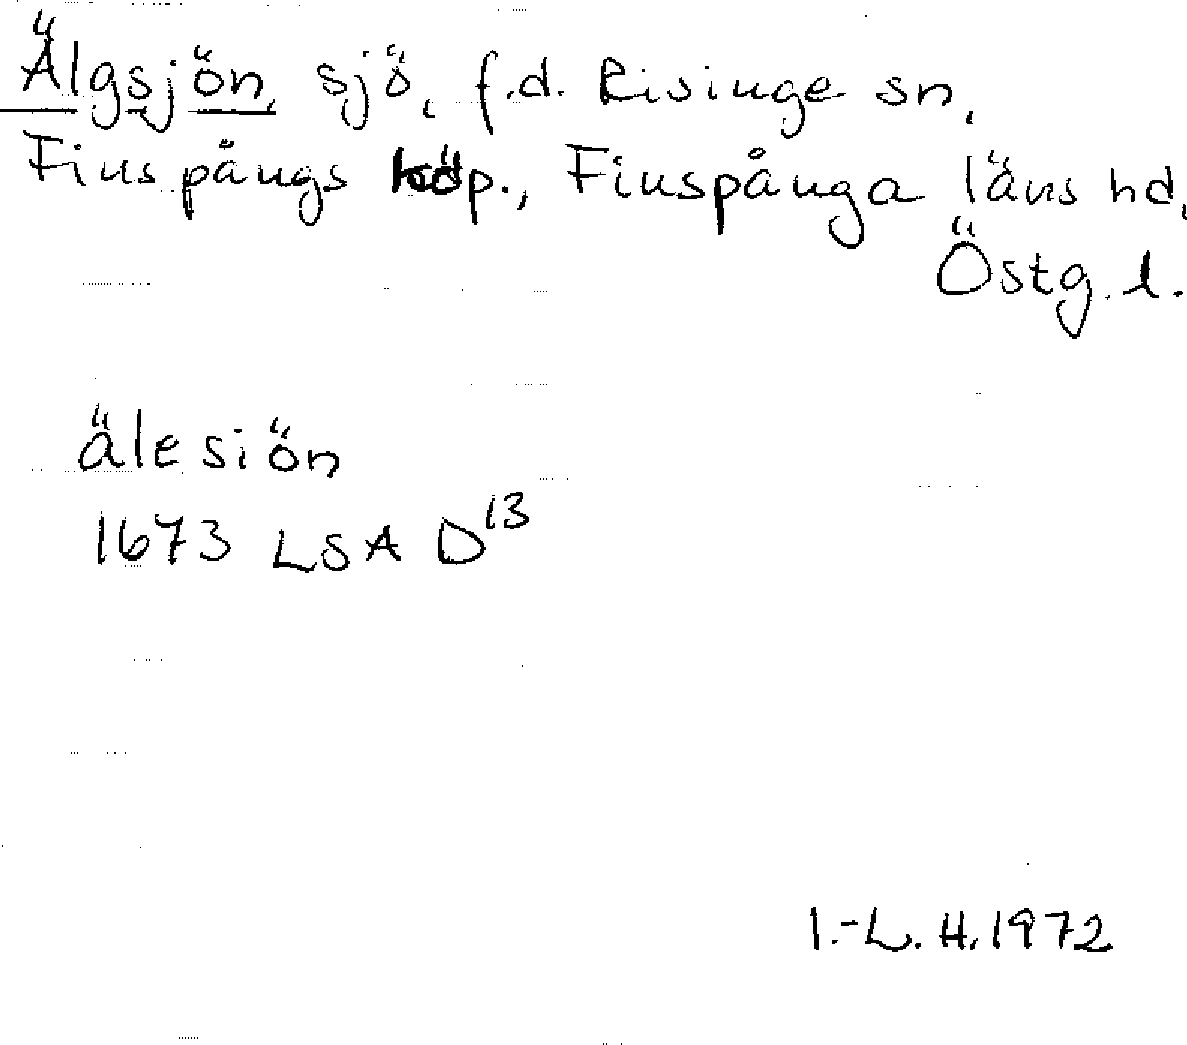 Älgsjön, sjö, f.d. Risinge sn,
Finspångs köp., Finspånga läns hd,
Östg. l.
älesiön
1673 LSA D¹³
I.-L. H. 1972